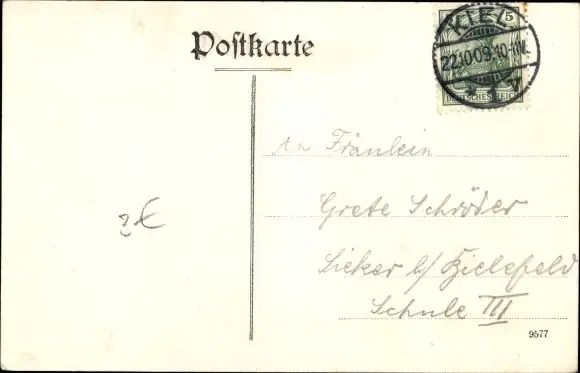 Postkarte
KIEL
5
22.10.09.10-11V.
DEUTSCHES REICH
An Fräulein
Grete Schröder
Sieker b/ Bielefeld
Schule III
3€
9577